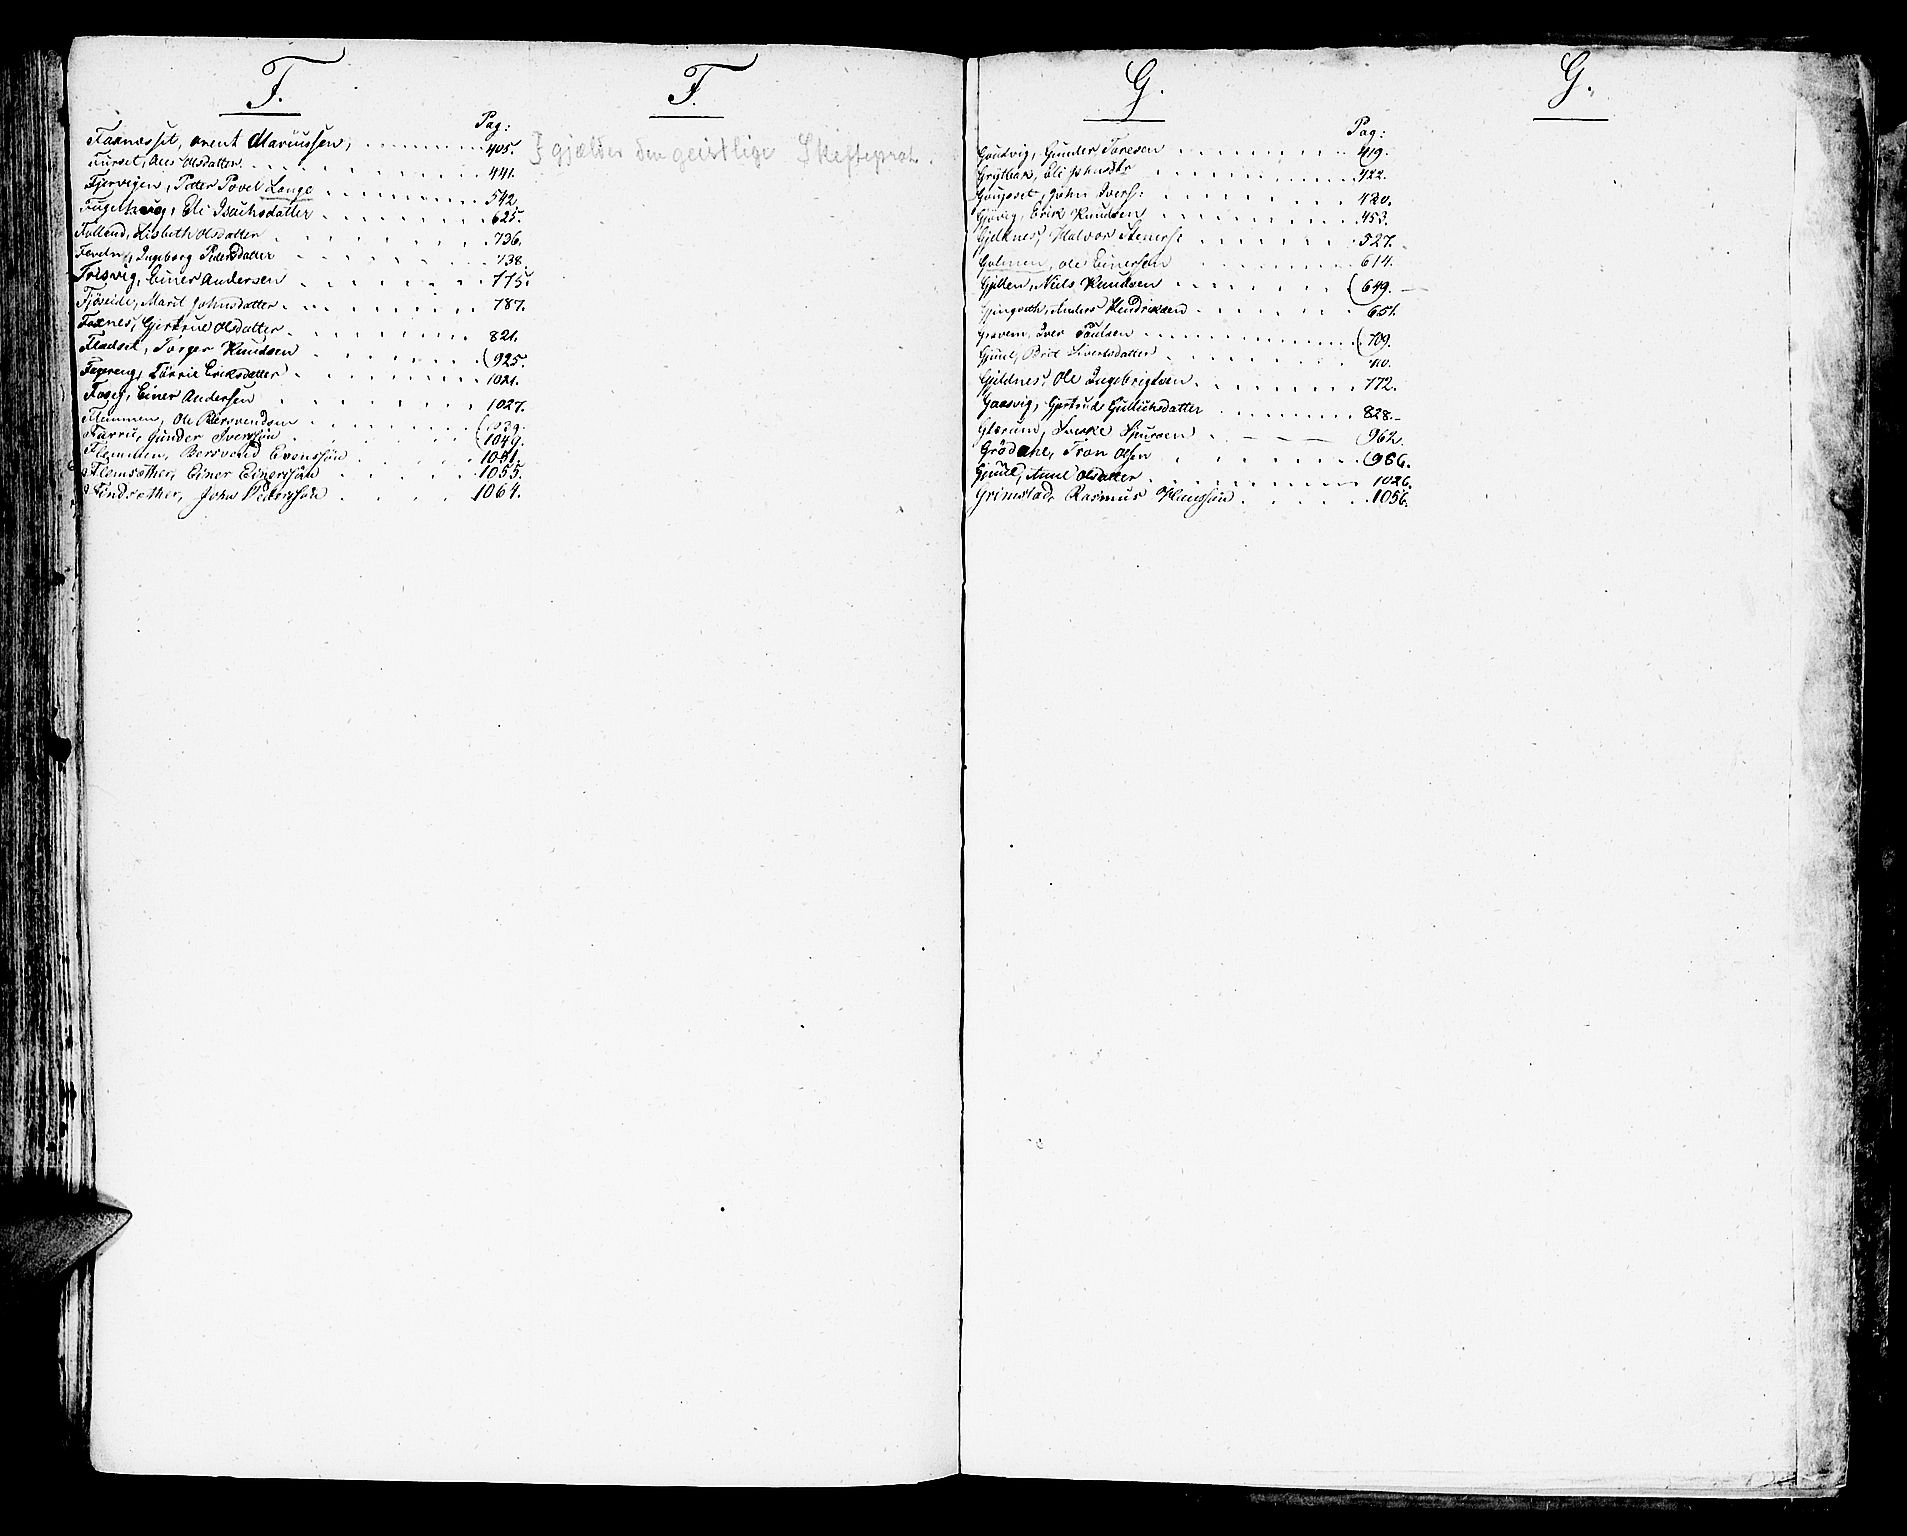 F.
Pag:
Foxnæsset, arent Mariussen, 405.
Furset, Ales Olsdatter 441.
Fjervigen, Peter Povel Lange 542.
Fugelhoug, Eli Isachsdatter 625.
Folland, Lisbeth Olsdatter 736.
Ingeborg Pedersdatter 738.
Frisvig, Einer Andersen 775.
Fjöseide, Marit Johnsdatter 787.
Foxnes, Gjertrue Olsdatter 821.
Fladset, Torger Knudsen (925.
Eriksdatter 1021.
Einer Andersen 1027.
Flemmen, Ole Bersvendsen
Gunder Iversøn (1049.
Flemmen, Bersvend Evensøn 1051.
Flemsæther, Einer Einersøn 1055.
Findsæther, John Pedersøn 1064.
F.
} gjælder den geistlige Skifteprot.
G.
Pag:
Goudvig, Gunder Toresen 419.
Grytbak, Eli Johnsdtr 422.
Gougset, John Ivers: 420.
Gjövig, Erik Knudsen 453.
Gjelknes, Halvor Steners: 527.
Golmen, ole Einersen 614.
Gjellen, Niels Knudsen (649.
Anders Hendriksen 651.
Graven, Iver Paulsen (709.
Gjuul, Brit Sivertsdatter 710.
Gjeldnes, Ole Ingebrigtsen 772.
Gaasvig, Gjertrude Gulichsdatter 828.
Sjursen (962.
Grödahl, Tron Olsen (986.
Gjuul, Anne Olsdatter 1026.
Grimstad, Rasmus Hansøn 1056.
G.